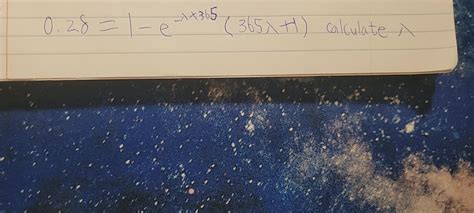 0.28 = 1 - e^{-λ×365} (365λ+1) calculate λ